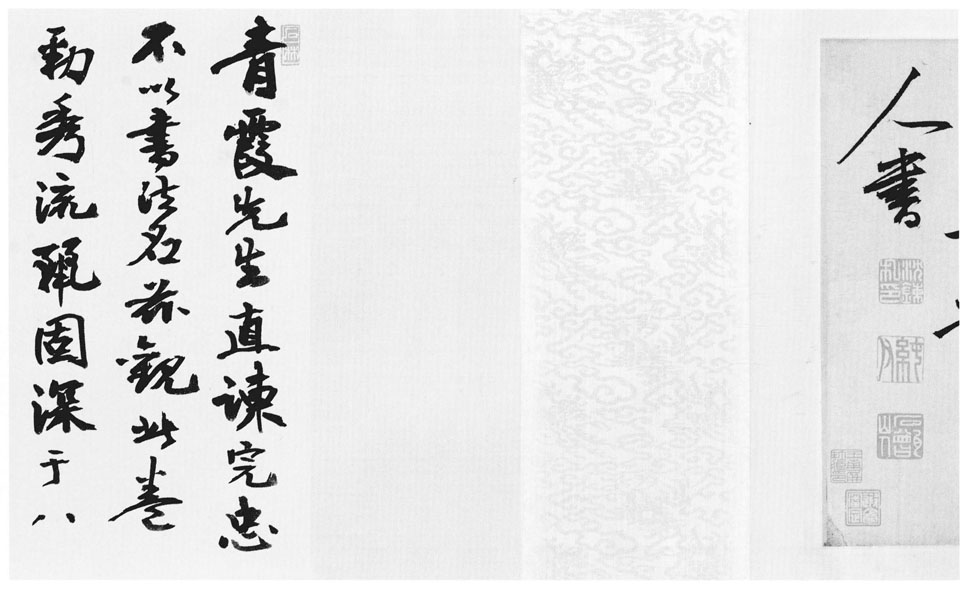 人書
青霞先生直諫完忠
不以書法名茲觀此卷
勁秀流麗固深于八